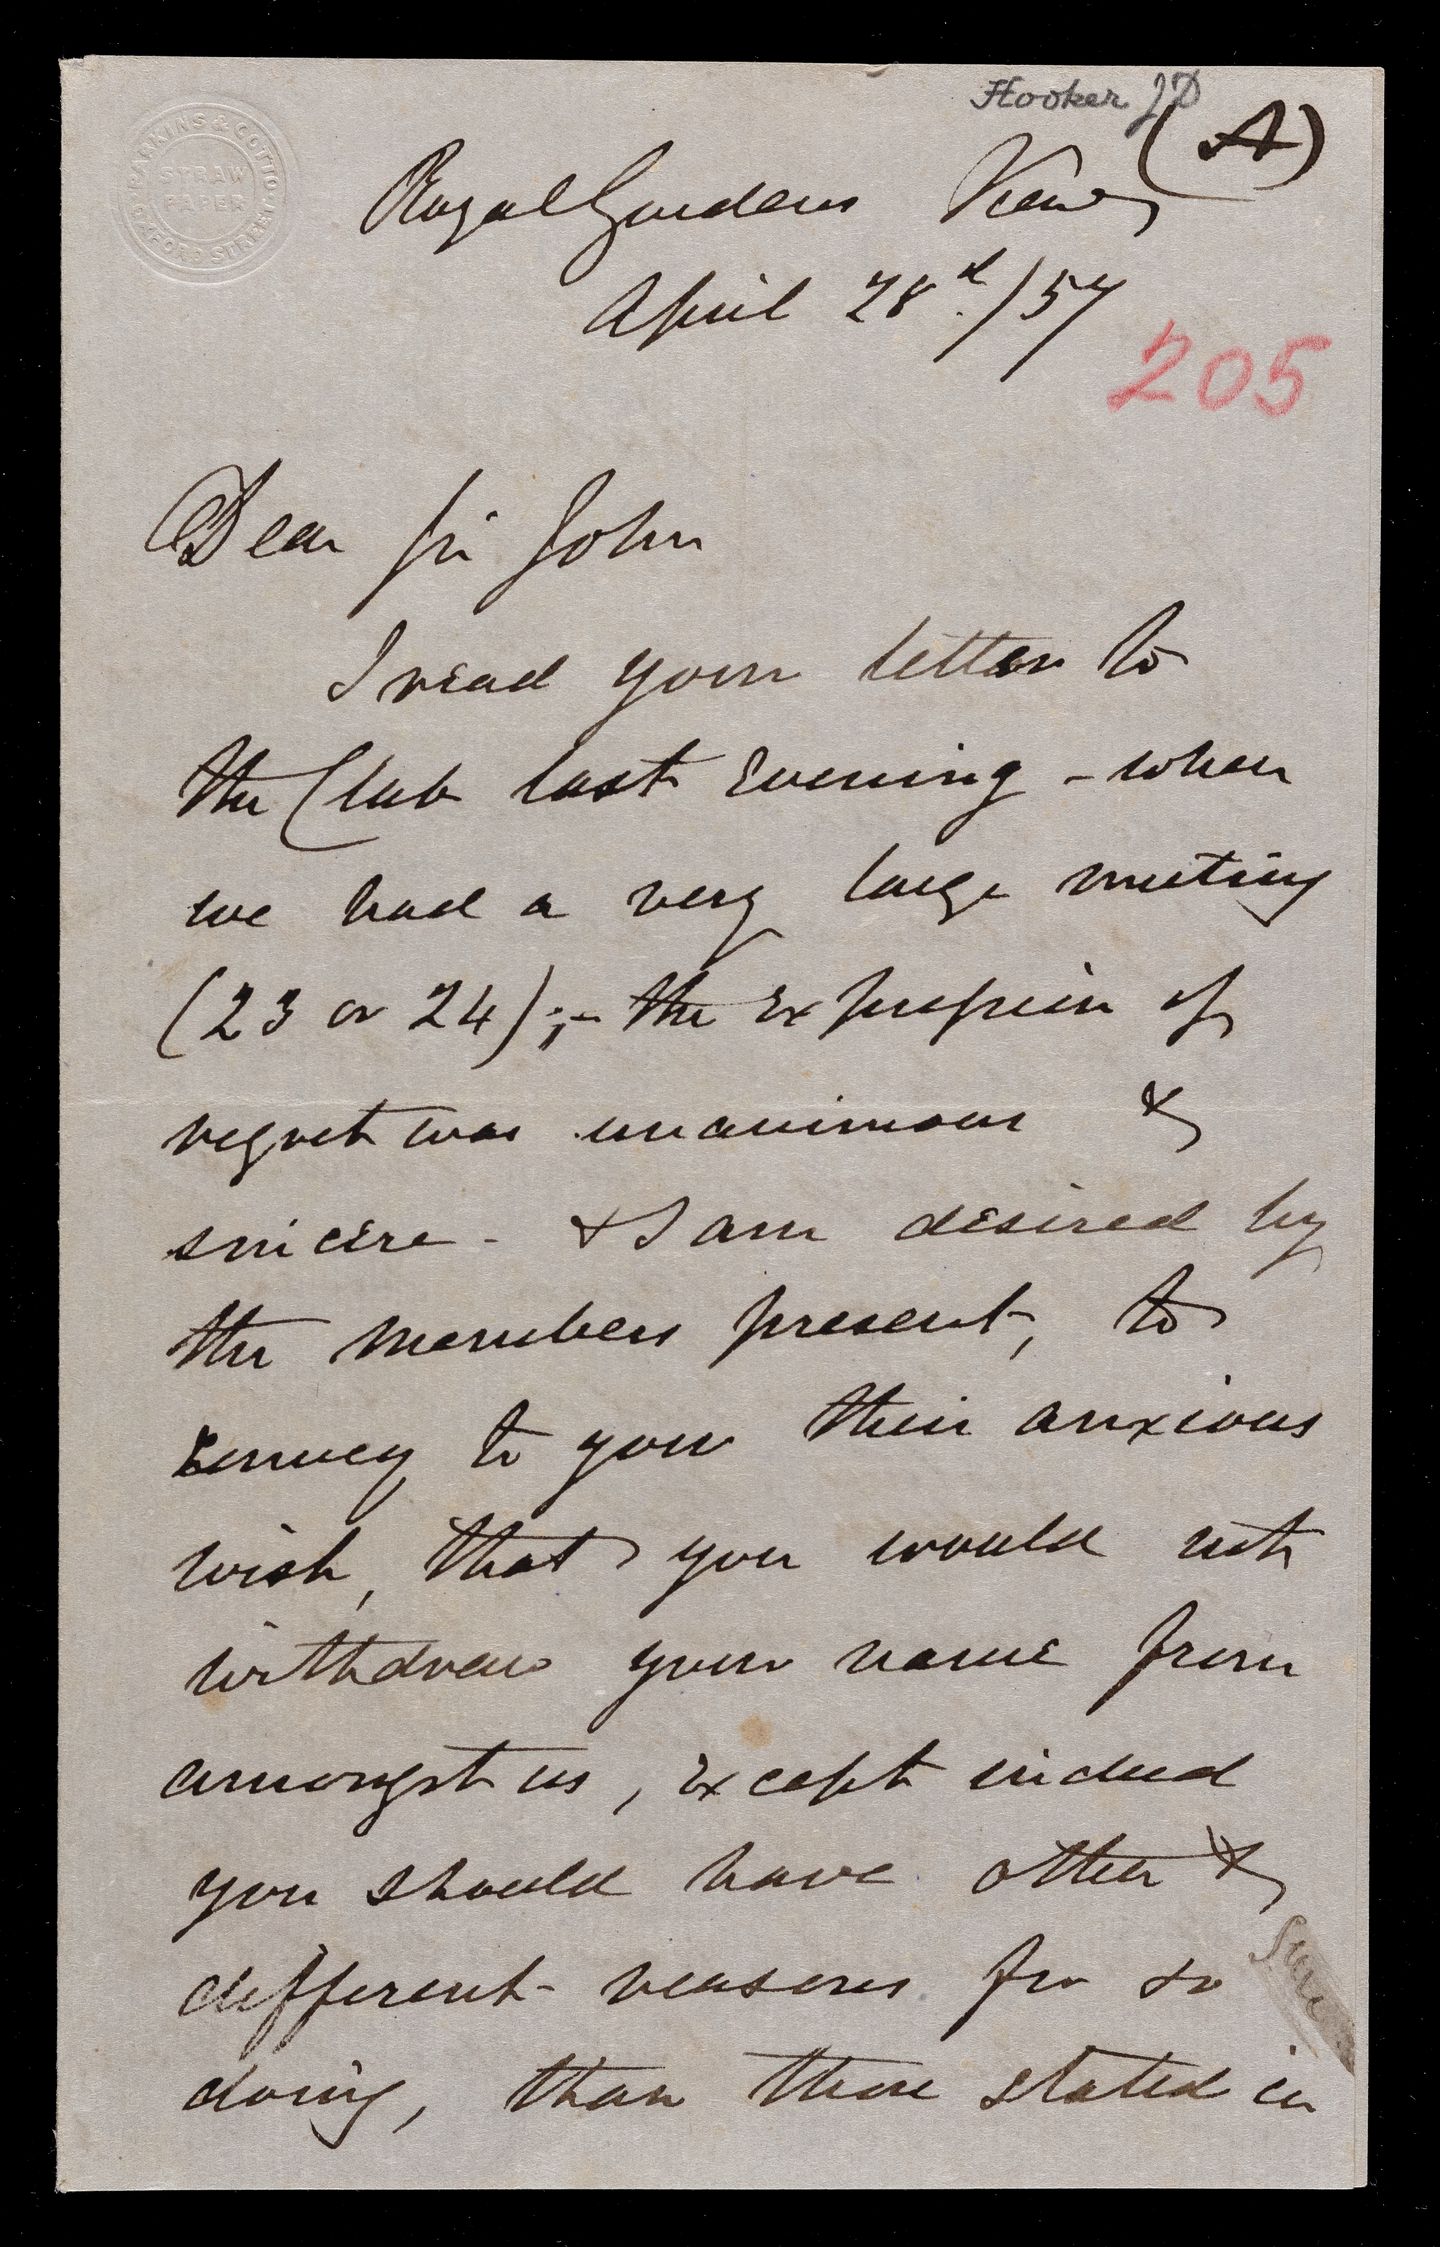 PARKINS & GOTTO
STRAW
PAPER
OXFORD STREET
Hooker JD
(A)
Royal Gardens Kew
April 28th./57
205
Dear Sir John
I read your letter to
the Club last Evening - when
we had a very large meeting
(23 or 24);- the Expression of
regret was unanimous &
sincere - & I am desired by
the members present, to
convey to you their anxious
wish, that you would not
withdraw your name from
amongst us, Except indeed
you should have other &
different reasons for so
doing, than those stated in